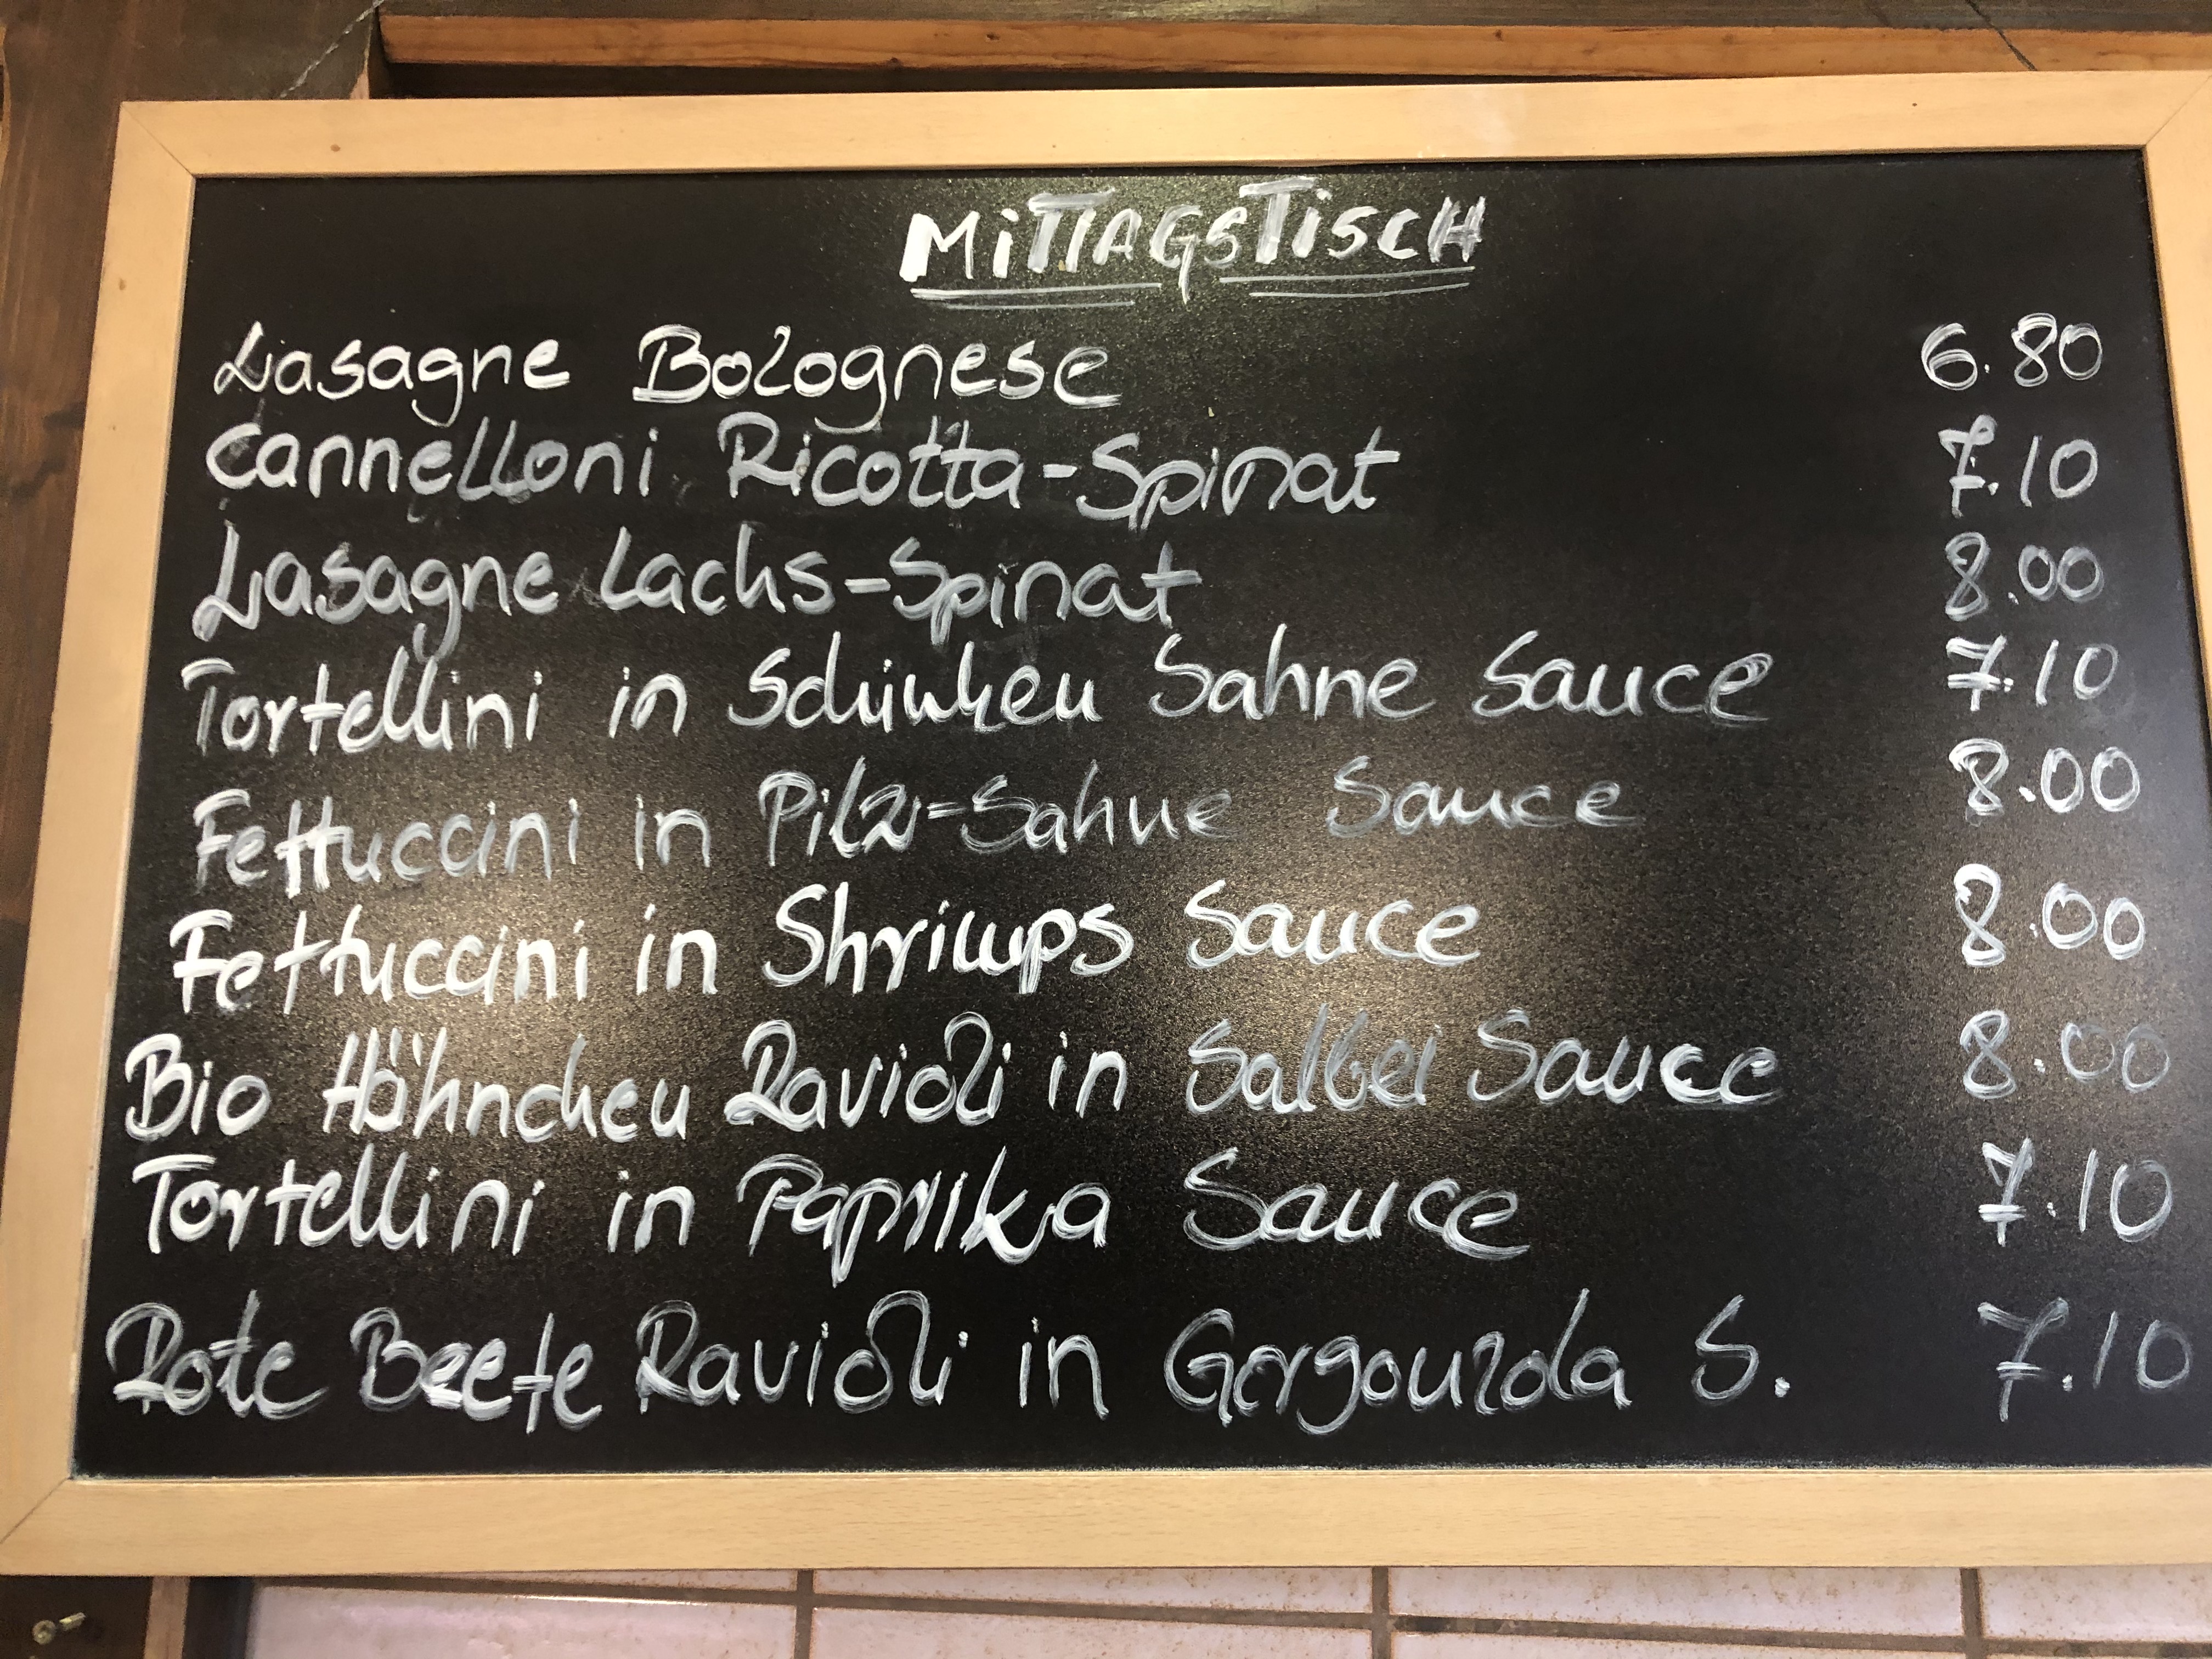 MiTTAGSTiSCH
Lasagne Bolognese 6.80
Cannelloni Ricotta-Spinat 7.10
Lasagne Lachs-Spinat 8.00
Tortellini in Schinken Sahne Sauce 7.10
Fettuccini in Pilz-Sahne Sauce 8.00
Fettuccini in Shrimps Sauce 8.00
Bio Hähnchen Ravioli in Salbei Sauce 8.00
Tortellini in Paprika Sauce 7.10
Rote Beete Ravioli in Gorgonzola S. 7.10